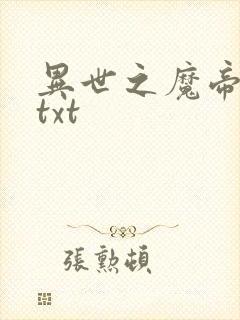 異世之魔帝
txt
張勲頓